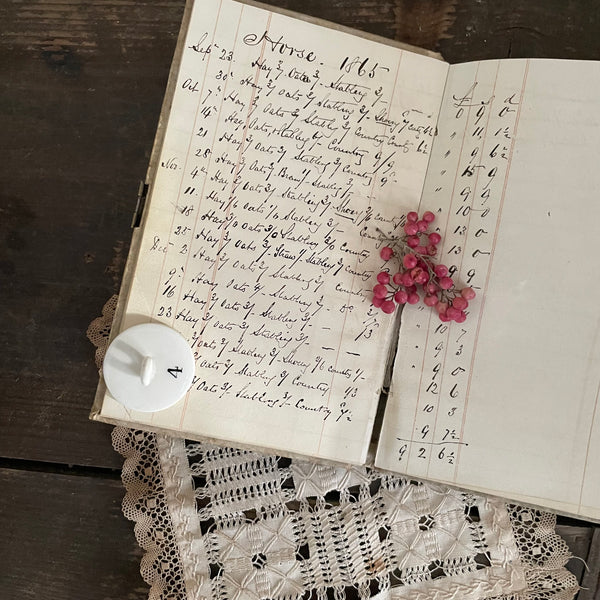 Horse. 1865
£ s d
Sept 23 Hay 3/ Oats 3/- Stabling 3/- 0 9 0
30 Hay 3/ Oats 3/ Stabling 3/ Shoeing " 11 1½
Oct 7th Hay 3/ Oats 3/ Stabling 3/ Country 6½ " 9 6½
14th Hay, Oats, Stabling Country " 15 9
21 Hay 3/ Oats 3/ Stabling 3/ Country 9 " 9 9
28 Hay 3/ Oats 3/ Bran Stabling " 10 0
Nov. 4th Hay 3/ Oats 3/ Stabling 3/ Shoes Country " 13 0
11 Hay Oats Stabling 3/- " 13 0
18 Hay 3/0 Oats 3/0 Stabling 3/0 Country 9
25 Hay 3/ Oats 3/- Straw Stabling 3/ Country
Dec 2 Hay 3/ Oats 3/ Stabling 3/ Country
9 Hay Oats 4/- Stabling 3/- 10 7
16 Hay 3/ Oats 3/ Stabling 3/- " 9 3
23 Hay 3/ Oats 3/ Stabling 3/- " 9 0
Oats 3/ Stabling 3/ Shoeing 2/6 Country 12 6
Oats 3/ Stabling 3/ Country 1/3 10 3
Oats 3/- Stabling 3/- Country 7½ 9 7½
9 2 6½
4